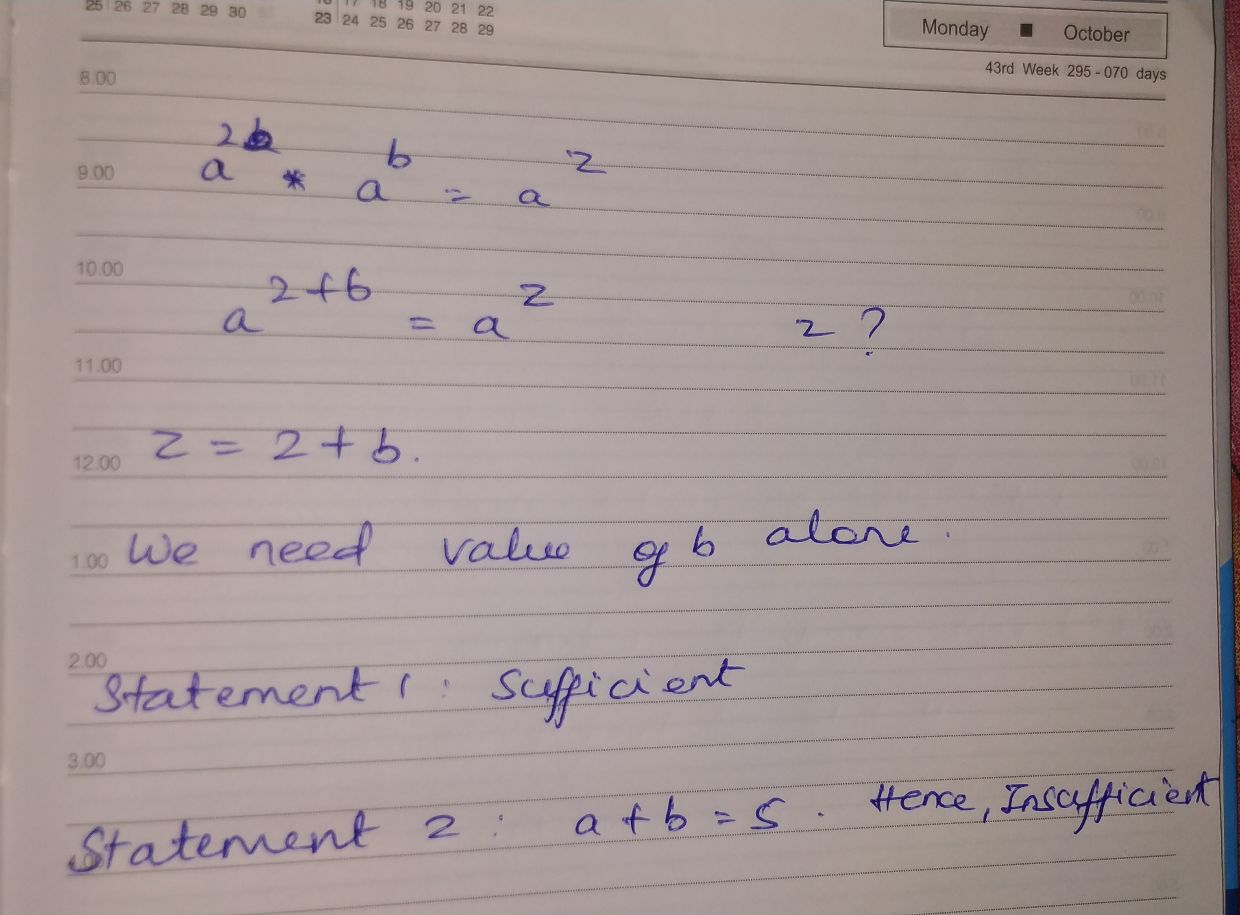 25 26 27 28 29 30
18 19 20 21 22
23 24 25 26 27 28 29
Monday ■ October
43rd Week 295 - 070 days
8.00
9.00 a^2 * a^b = a^z
10.00
a^{2+b} = a^z z ?
11.00
12.00 z = 2 + b.
1.00 We need value of b alone.
2.00
Statement 1 : Sufficient
3.00
Statement 2 : a + b = 5 . Hence, Insufficient